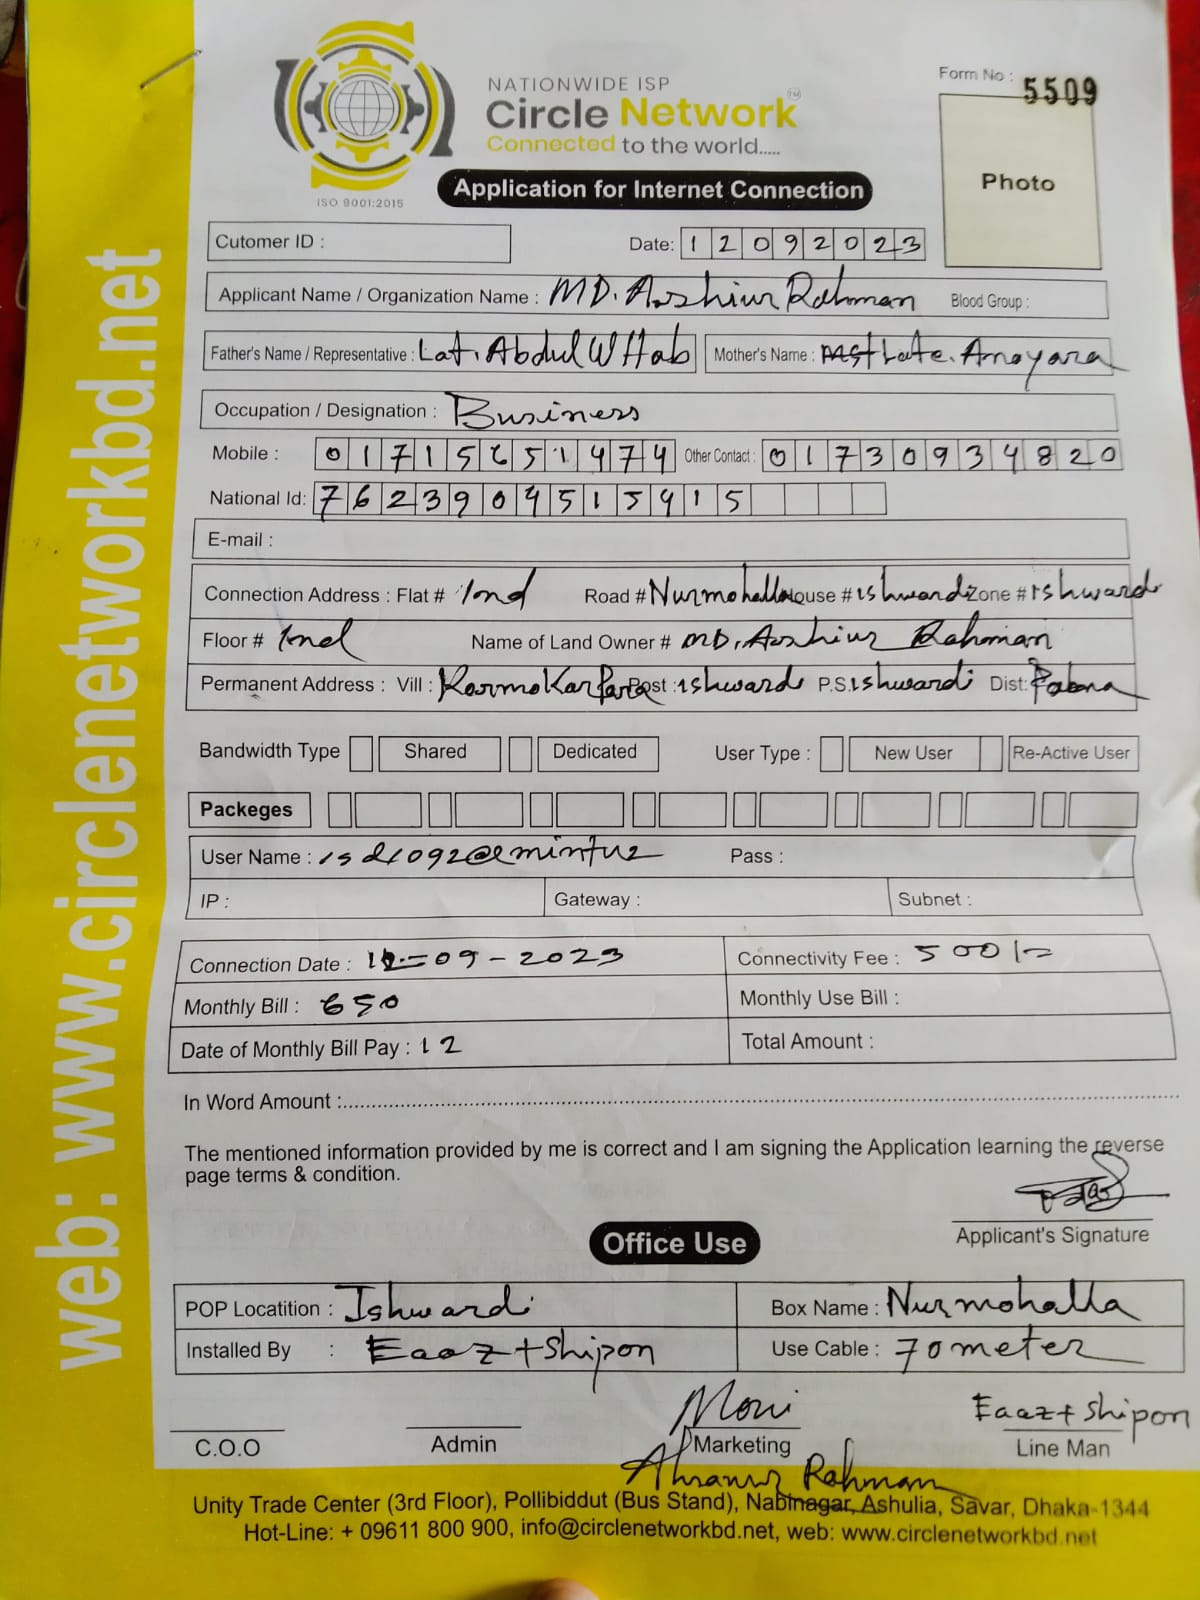 NATIONWIDE ISP
Circle Network TM
Connected to the world.....
ISO 9001:2015
Form No : 5509
Photo
Application for Internet Connection
Cutomer ID :
Date: 12092023
Applicant Name / Organization Name : MD. Ashiur Rahman Blood Group :
Father's Name / Representative : Lat. Abdul WHab Mother's Name : Late. Anoyara
Occupation / Designation : Business
Mobile : 01715651474 Other Contact : 01730934820
National Id: 7623904515415
E-mail :
Connection Address : Flat # 1nd Road # Nurmohalla House # ishwardi Zone # Ishwardi
Floor # 1nd Name of Land Owner # MD. Ashiur Rahman
Permanent Address : Vill : KarmoKarPara Post : ishwardi P.S. Ishwardi Dist: Pabna
Bandwidth Type Shared Dedicated User Type : New User Re-Active User
Packeges
User Name : Pass :
IP : Gateway : Subnet :
Connection Date : 12-09-2023 Connectivity Fee : 500/-
Monthly Bill : 650 Monthly Use Bill :
Date of Monthly Bill Pay : 12 Total Amount :
In Word Amount :
The mentioned information provided by me is correct and I am signing the Application learning the reverse
page terms & condition.
Applicant's Signature
Office Use
POP Locatition : Ishwardi Box Name : Nurmohalla
Installed By : Eaaz+Shipon Use Cable : 70 meter
Moni Eaaz+Shipon
C.O.O Admin Marketing Line Man
Rahman
Unity Trade Center (3rd Floor), Pollibiddut (Bus Stand), Nabinagar, Ashulia, Savar, Dhaka-1344
Hot-Line: + 09611 800 900, info@circlenetworkbd.net, web: www.circlenetworkbd.net
web: www.circlenetworkbd.net